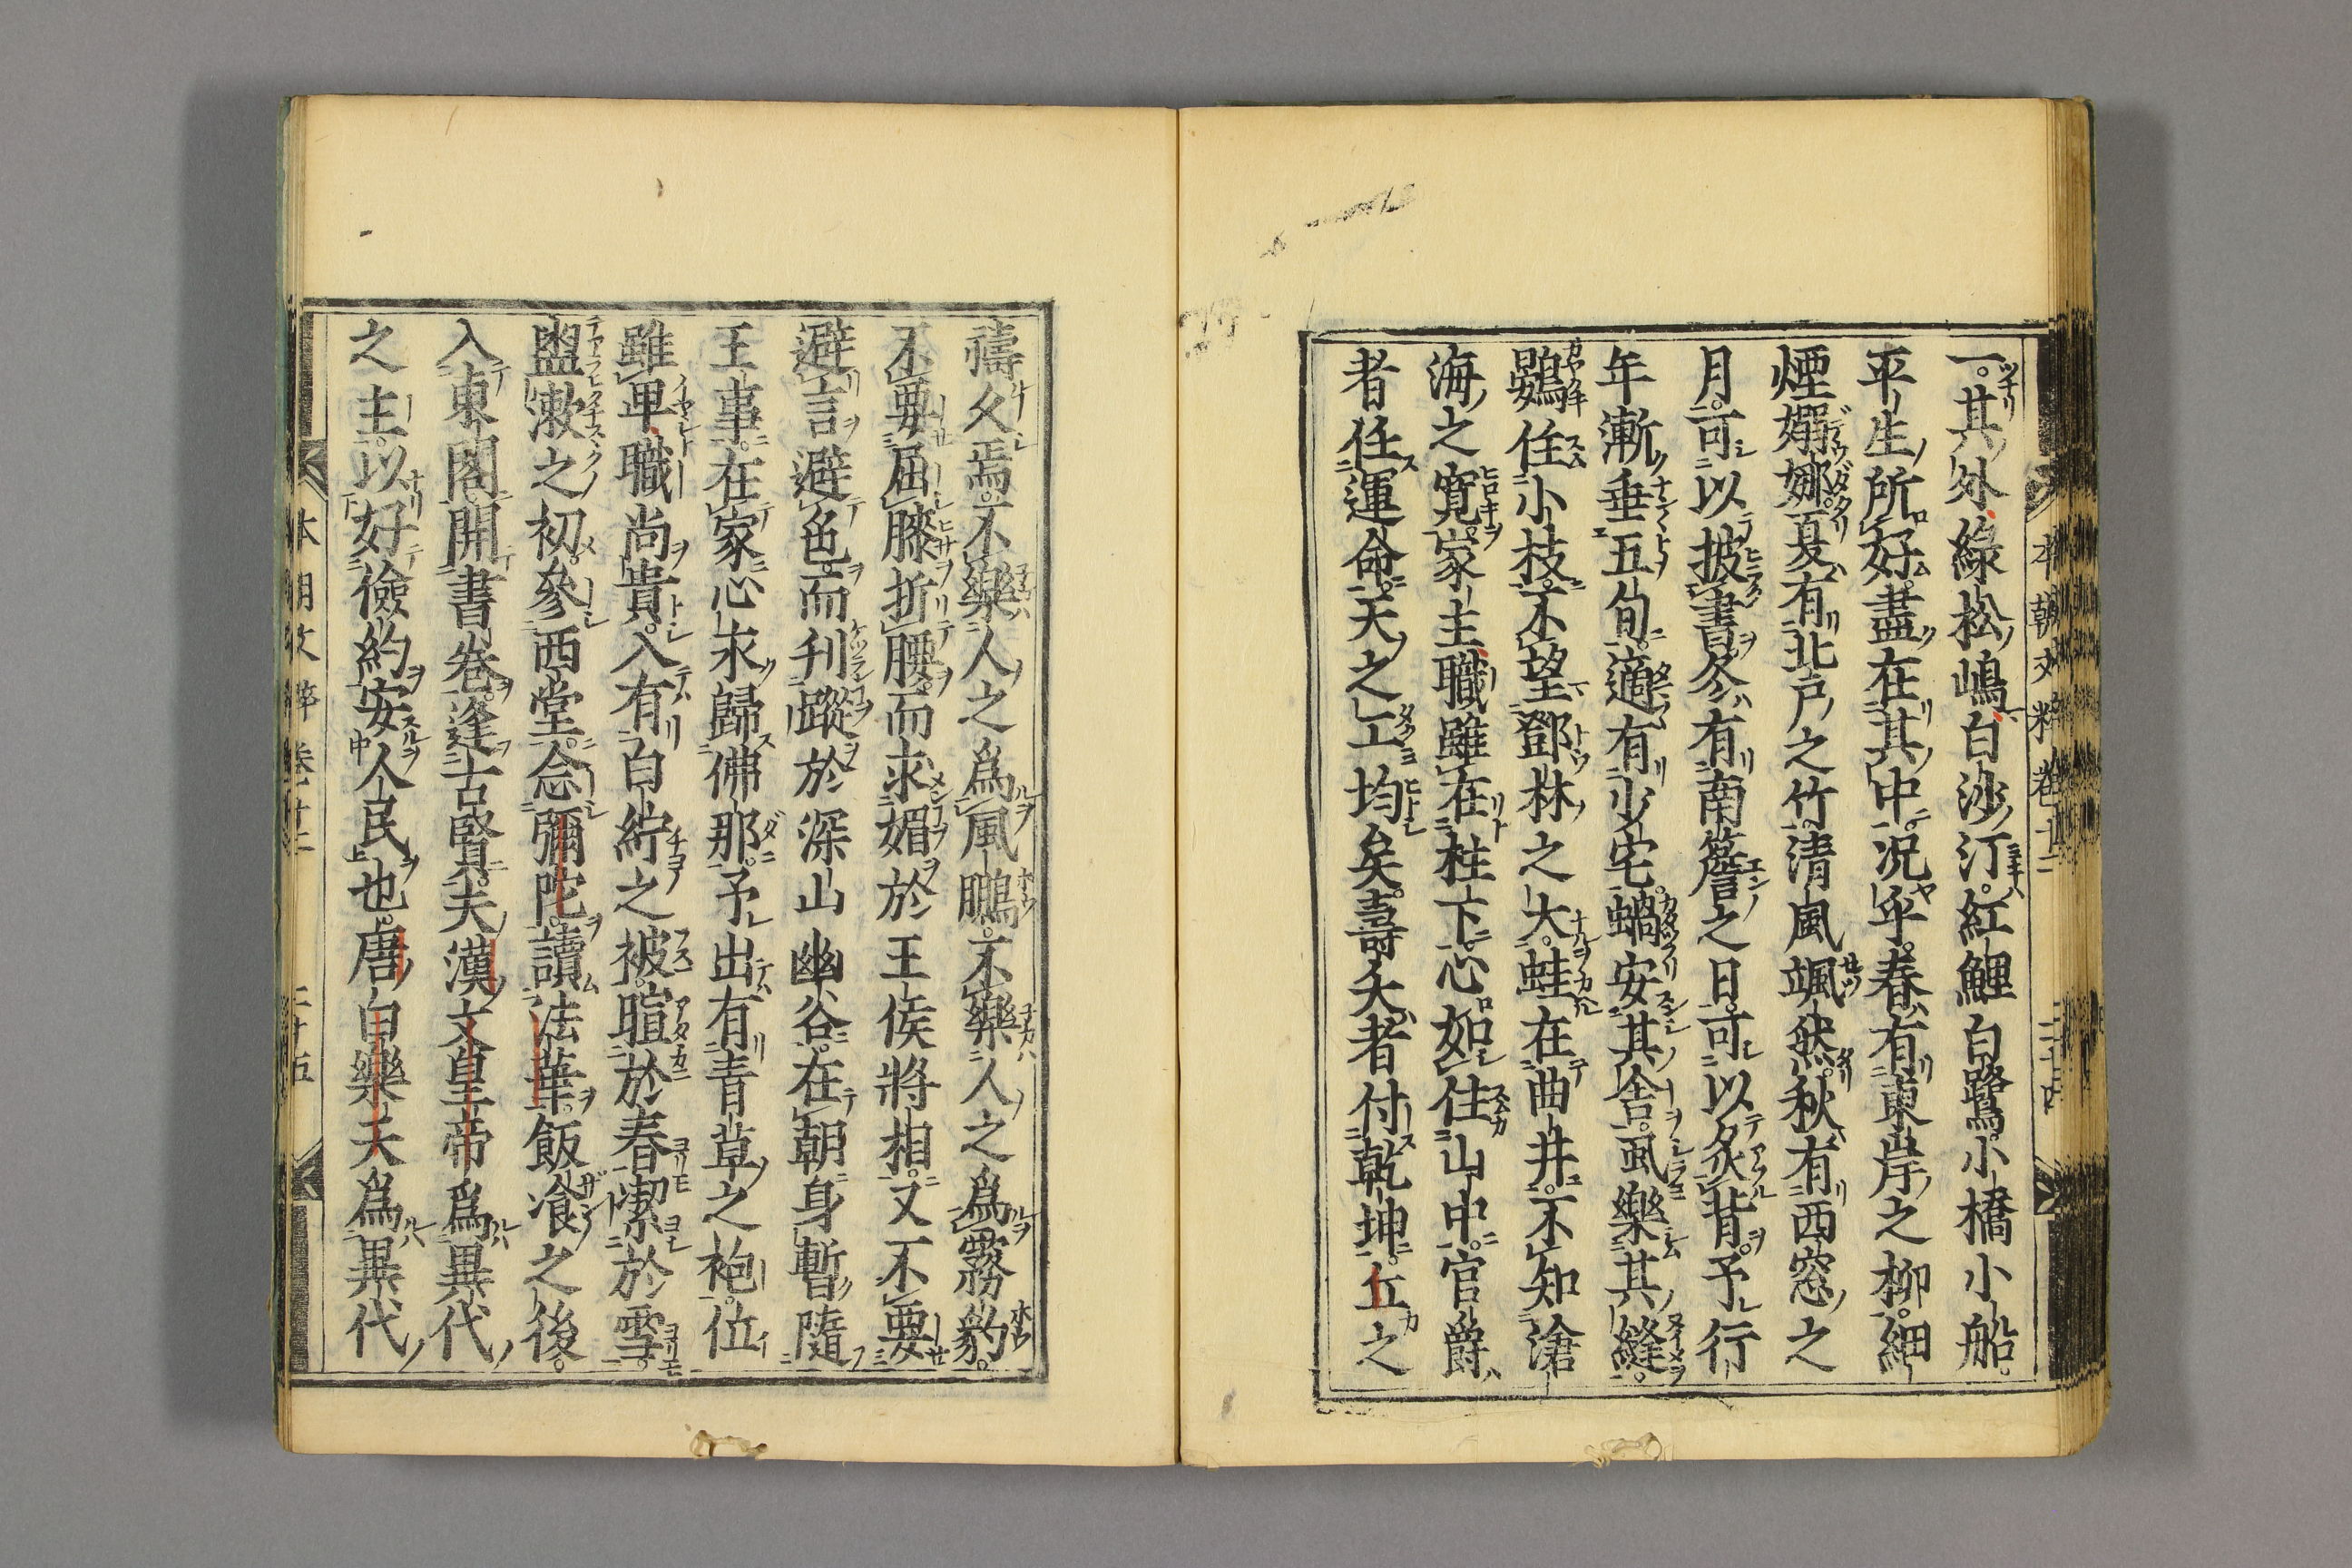 一其外綠松嶋白沙汀紅鯉白鷺小橋小船
平生所好盡在其中況乎春有東岸之柳細
煙嫋娜夏有北戸之竹清風颯然秋有西窓之
月可以披書冬有南簷之日可以炙背予行
年漸垂五旬適有少宅蝸安其舎虱樂其縫
鷃住小枝不望鄧林之大蛙在曲井不知滄
海之寛家主職雖在柱下心如住山中官爵
者任運命天之工均矣壽夭者付乾坤丘之
本朝文粹卷十二
二十四
禱久焉不樂人之爲風鵬不樂人之爲霧豹
不要屈膝折腰而求媚於王侯將相又不要
避言避色而刊蹤於深山幽谷在朝身暫隨
王事在家心永歸佛那予出有青草之袍位
雖卑職尚貴入有白紵之被暄於春潔於雪
盥漱之初參西堂念彌陀讀法華飯飡之後
入東閣開書巻逢古賢夫漢文皇帝爲異代
之主以好儉約安人民也唐白樂天爲異代
本朝文粹卷十二
二十五